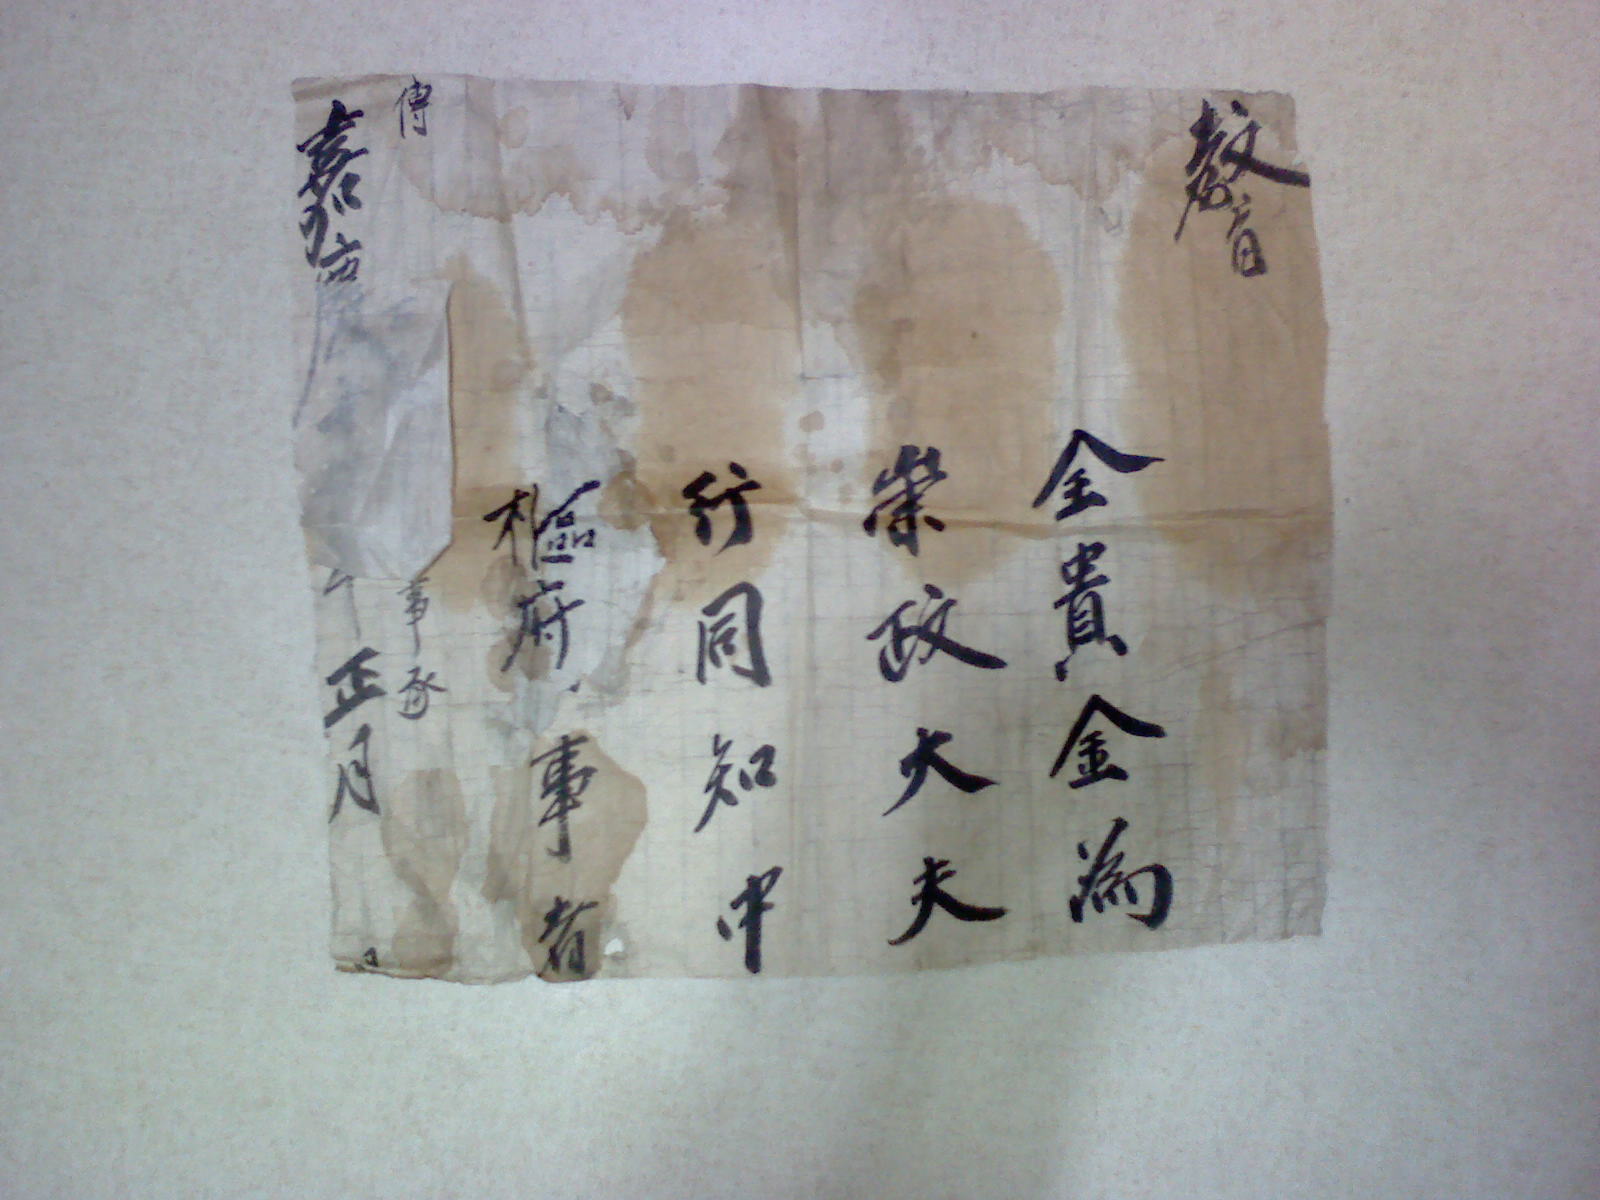 敎旨
全貴金為
崇政大夫
行同知中
樞府事者
傳 事承
嘉慶 年正月 日